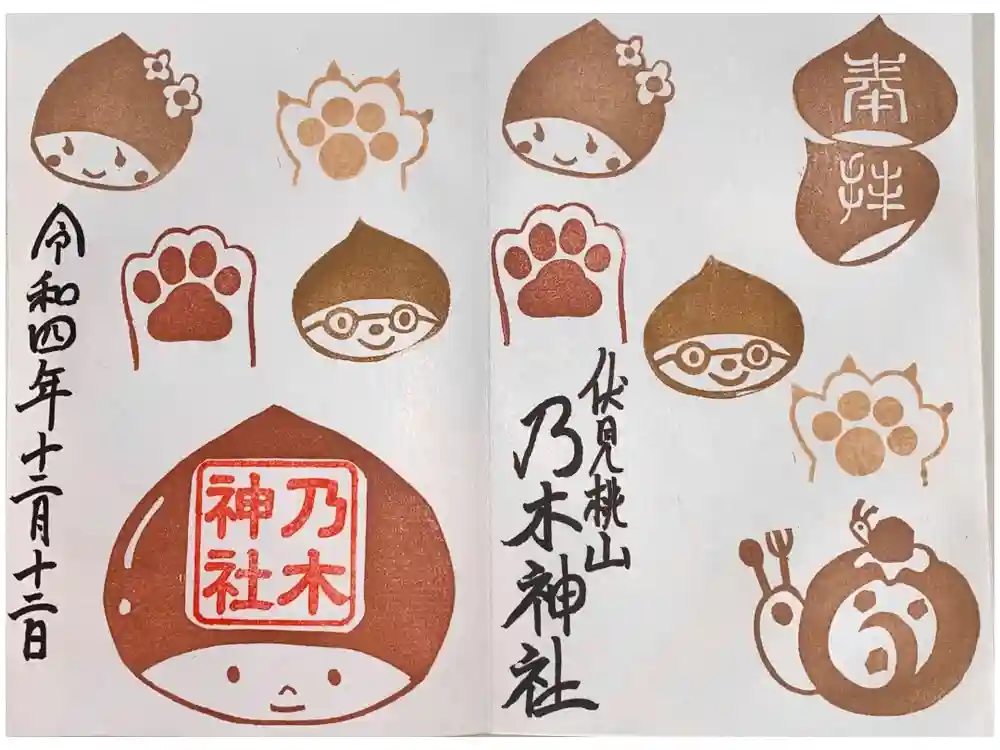 奉拝
伏見桃山
乃木神社
乃木
神社
令和四年十二月十二日